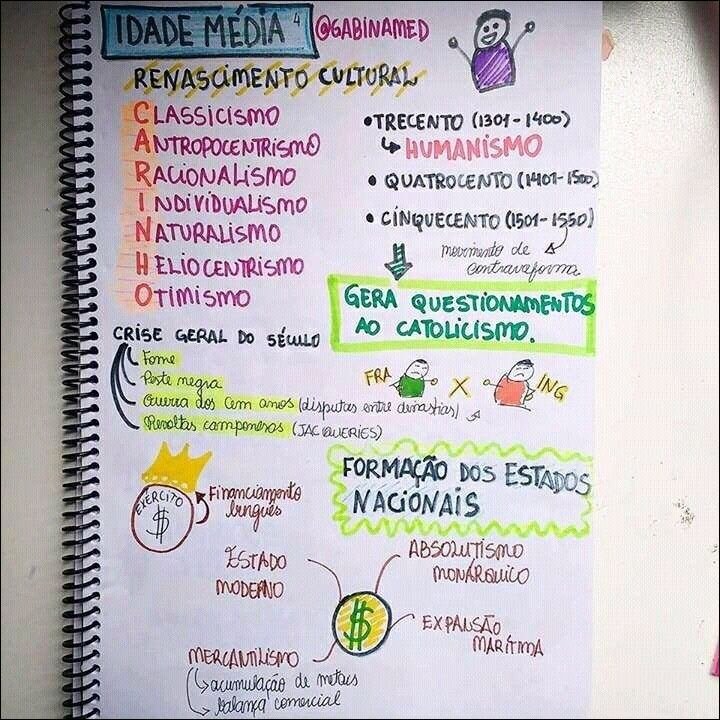 IDADE MÉDIA 4 @GABINAMED
RENASCIMENTO CULTURAL
CLASSICISMO
ANTROPOCENTRISMO
RACIONALISMO
INDIVIDUALISMO
NATURALISMO
HELIOCENTRISMO
OTIMISMO
• TRECENTO (1301-1400)
↳ HUMANISMO
• QUATROCENTO (1401-1500)
• CINQUECENTO (1501-1550)
movimento de
contrareforma
GERA QUESTIONAMENTOS
AO CATOLICISMO.
CRISE GERAL DO SÉCULO
Fome
Peste negra
Guerra dos Cem anos (disputas entre dinastias)
Revoltas camponesas (JACQUERIES)
FRA X ING
EXÉRCITO
$
Financiamento
burguês
FORMAÇÃO DOS ESTADOS
NACIONAIS
ESTADO
MODERNO
ABSOLUTISMO
MONÁRQUICO
$
EXPANSÃO
MARÍTIMA
MERCANTILISMO
↳ acumulação de metais
↳ balança comercial